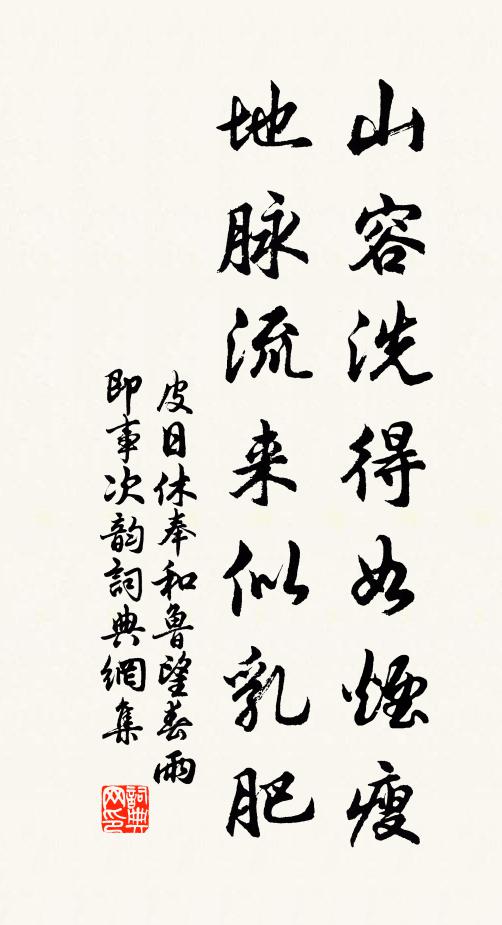 山容洗得如煙瘦
地脉流来似乳肥
皮日休奉和魯望春雨
即事次韵詞典網集
詞典网印